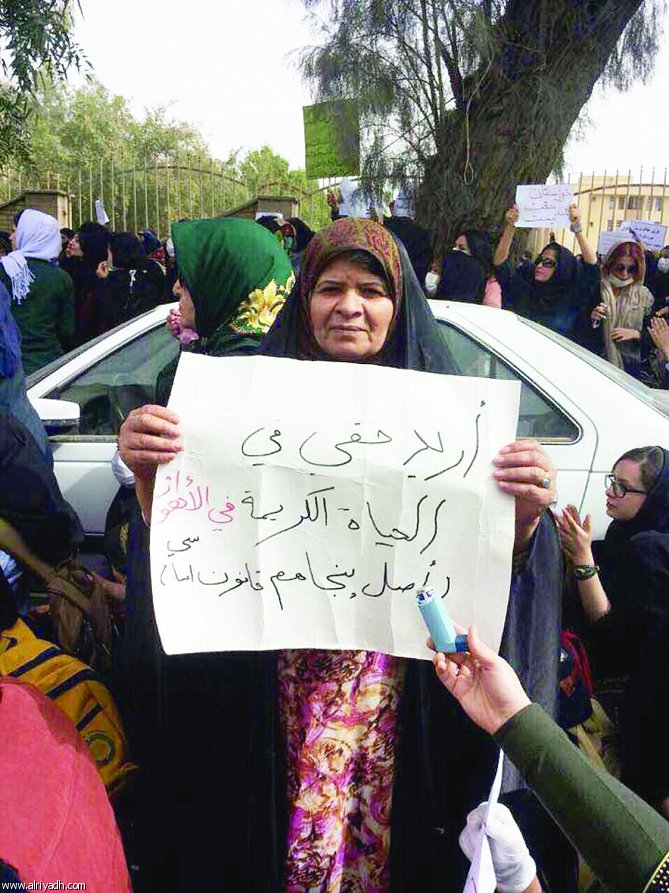 أريد حقي في
الحياة الكريمة في الأهواز
(أصل پنجاهم قانون اساسي)
www.alriyadh.com